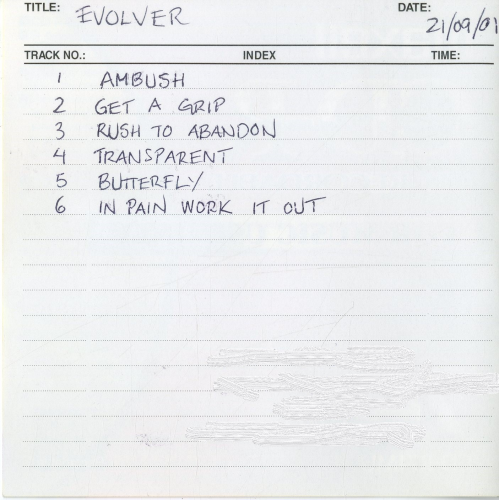 TITLE: EVOLVER DATE: 21/09/01
TRACK NO.: INDEX TIME:
1 AMBUSH
2 GET A GRIP
3 RUSH TO ABANDON
4 TRANSPARENT
5 BUTTERFLY
6 IN PAIN WORK IT OUT